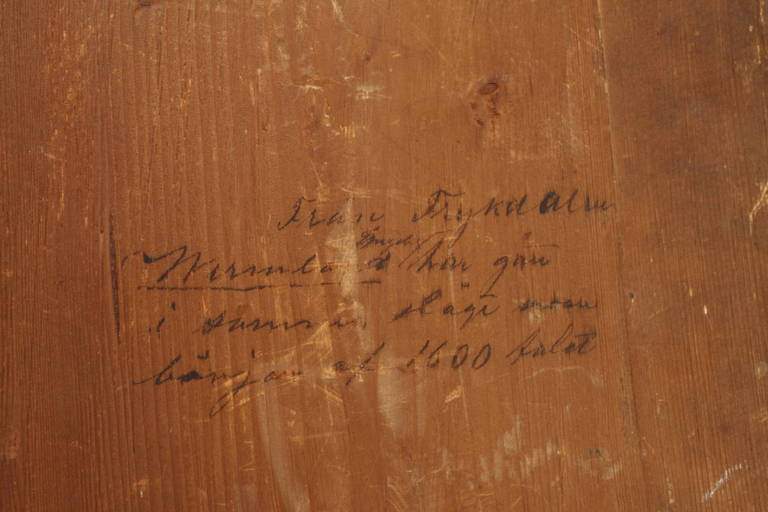 Från Frykdalen
Wermland har gått
i samma släge
början af 1600 talet